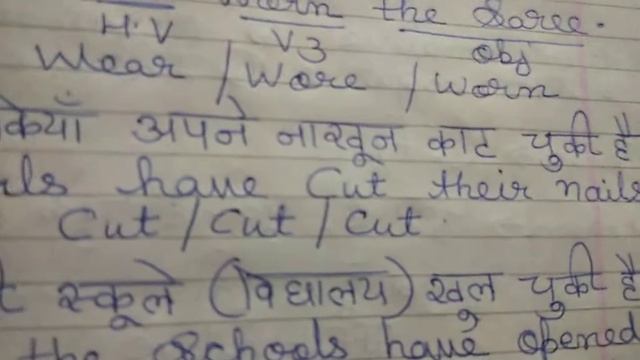 worn the Saree.
H.V V3 obj
Wear / Wore / Worn
कियाँ अपने नाखून काट चुकी है
ls have Cut their nails
Cut / Cut / Cut.
स्कूले (विद्यालय) खुल चुकी है
the Schools have opened